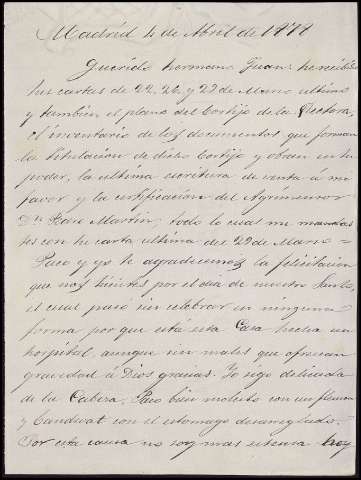 Madrid 4 de Abril de 1878
Querido hermano Juan: he recibido
tus cartas de 22, 26 y 29 de Marzo ultimo
y tambien el plano del Cortijo de la Rectora,
el inventario de los documentos que forman
la titulacion de dicho Cortijo y obran en tu
poder, la ultima escritura de venta á mi
favor y la certificacion del Agrimensor
Dn. Martin, todo lo cual me mandas
tes con tu carta ultima del 29 de Marzo =
Paco y yo te agradecemos la felicitacion
que nos hicistes por el dia de nuestro Santo,
el cual pasó sin celebrar en ninguna
forma por que está esta Casa hecha un
hospital, aunque sin males que ofrezcan
gravedad á Dios gracias. Yo sigo delicada
de la Cabeza, Paco bien molesto con un
y con el estomago desarreglado.
Por esta causa no soy mas estensa hoy